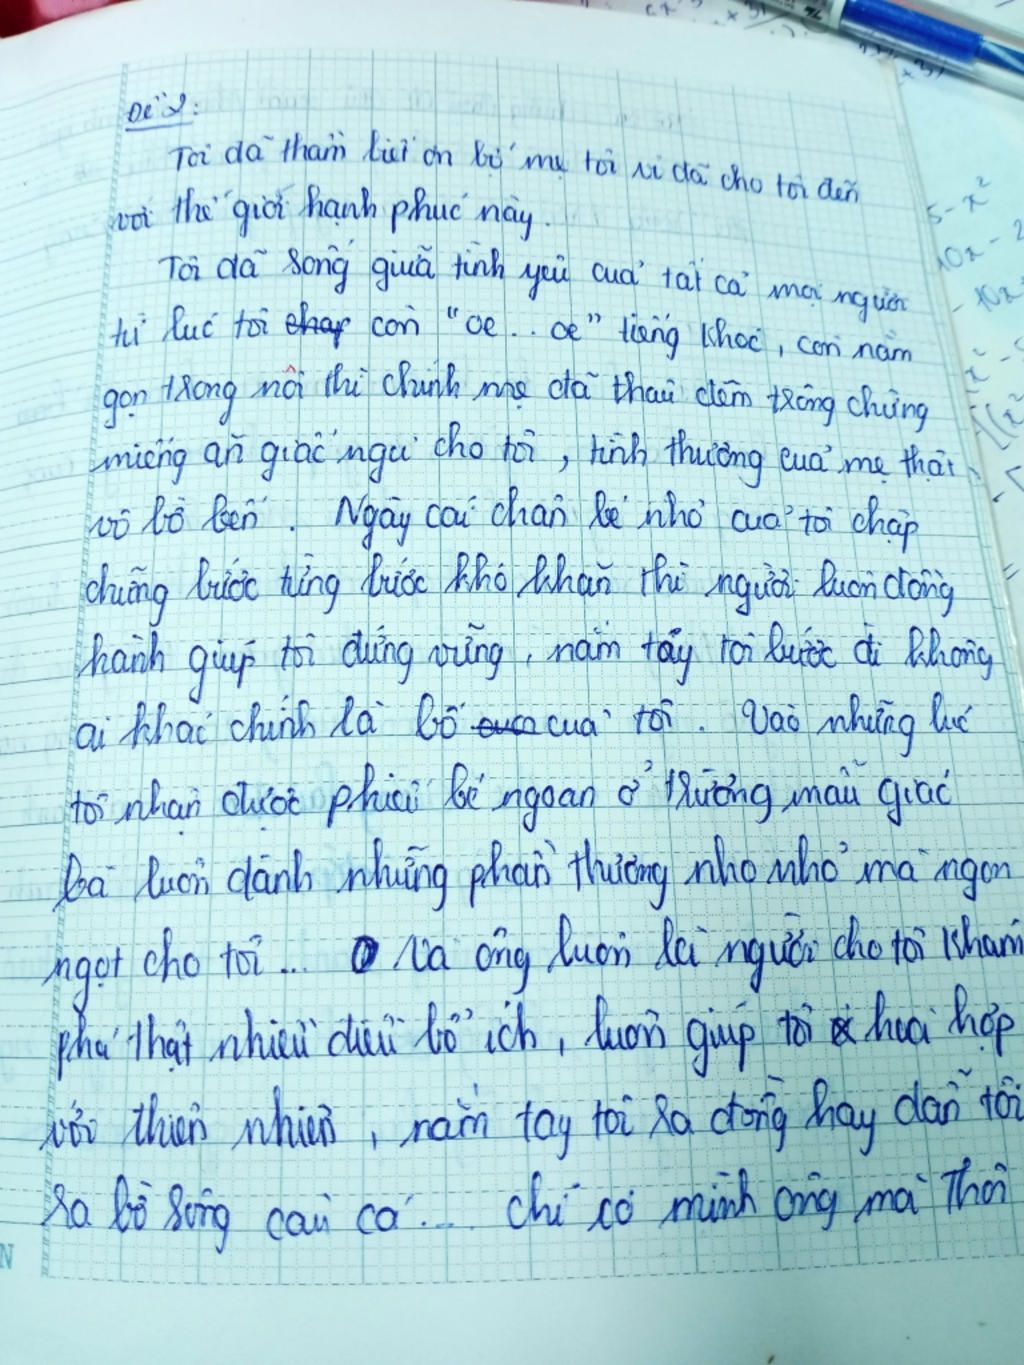 Đề 2:
Tôi đã thầm biết ơn bố mẹ tôi vì đã cho tôi đến
với thế giới hạnh phúc này.
Tôi đã sống giữa tình yêu của tất cả mọi người
từ lúc tôi còn "oe... oe" tiếng khóc, còn nằm
gọn trong nôi thì chính mẹ đã thâu đêm trông chừng
miếng ăn giấc ngủ cho tôi, tình thương của mẹ thật
vô bờ bến. Ngày cái chân bé nhỏ của tôi chập
chững bước từng bước khó khăn thì người luôn đồng
hành giúp tôi đứng vững, nắm tay tôi bước đi không
ai khác chính là bố của tôi. Vào những lúc
tôi nhận được phiếu bé ngoan ở trường mẫu giáo
bà luôn dành những phần thưởng nho nhỏ mà ngon
ngọt cho tôi... Và ông luôn là người cho tôi khám
phá thật nhiều điều bổ ích, luôn giúp tôi hoà hợp
với thiên nhiên, nắm tay tôi ra đồng hay dẫn tôi
ra bờ sông câu cá.... chỉ có mình ông mà thôi
5 - x²
10x - 2